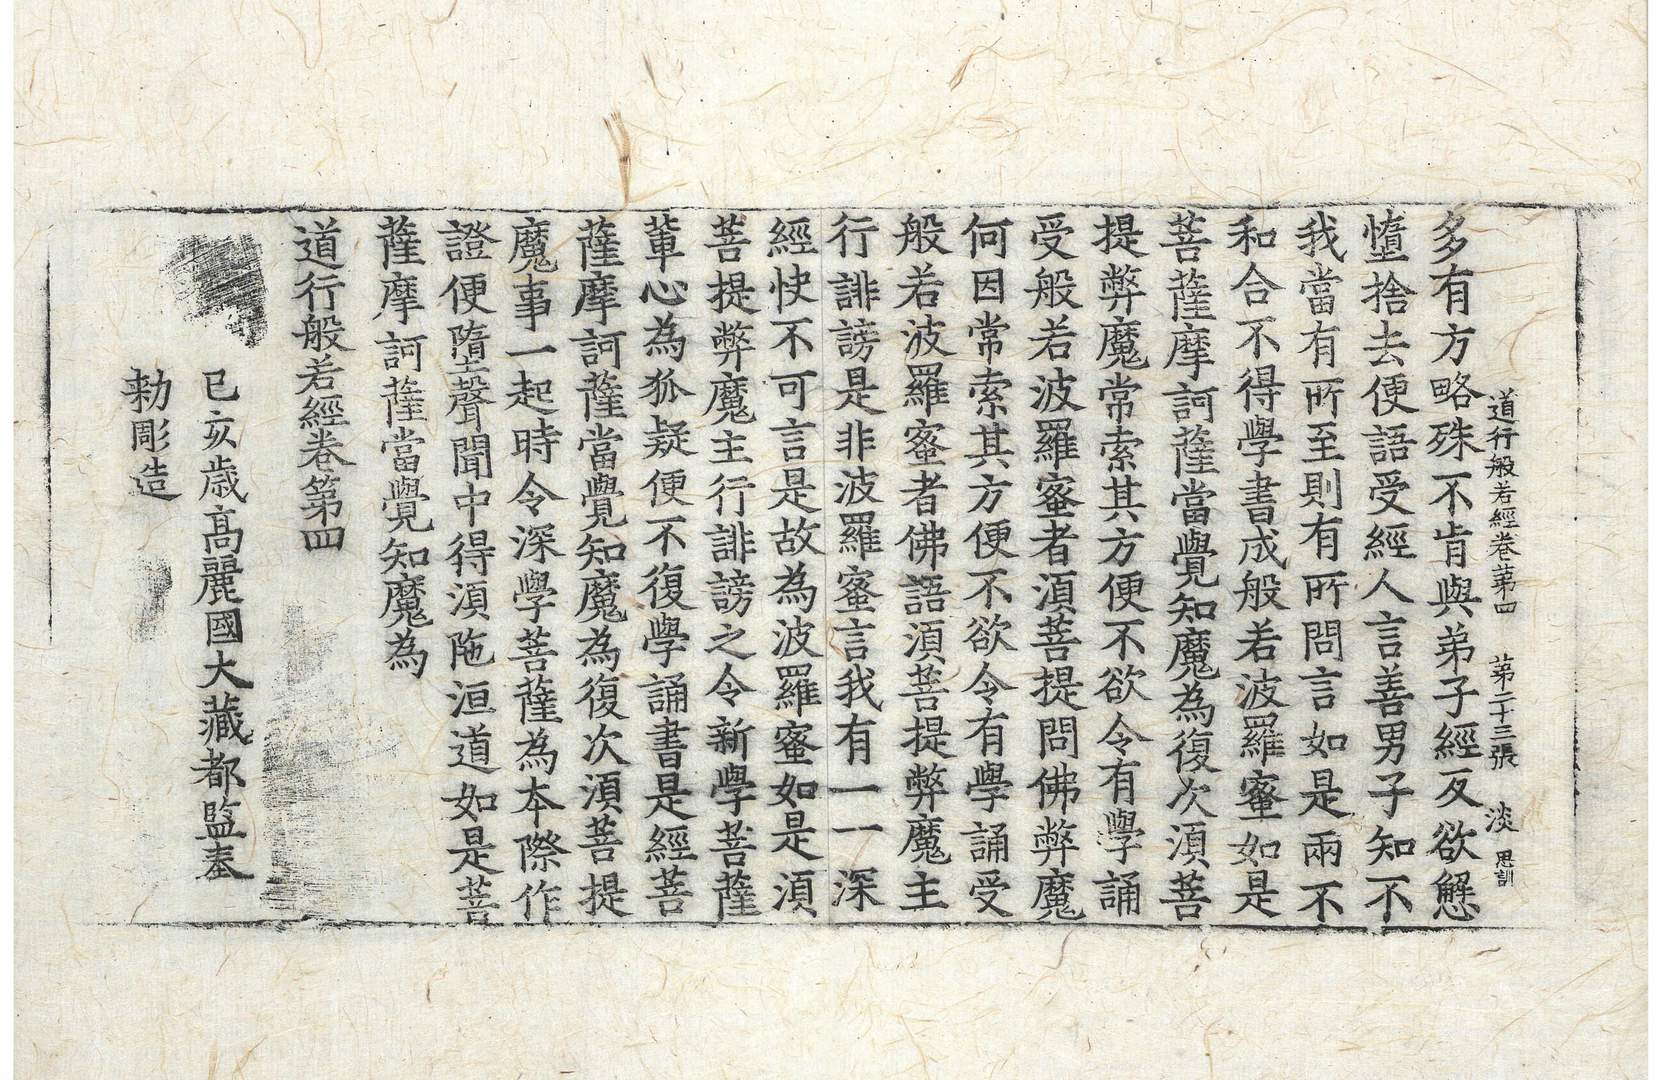 道行般若經卷第四 第二十三張 淡 思訓
多有方略殊不肯與弟子經反欲懈
憜捨去便語受經人言善男子知不
我當有所至則有所問言如是兩不
和合不得學書成般若波羅蜜如是
菩薩摩訶薩當覺知魔為復次須菩
提弊魔常索其方便不欲令有學誦
受般若波羅蜜者須菩提問佛弊魔
何因常索其方便不欲令有學誦受
般若波羅蜜者佛語須菩提弊魔主
行誹謗是非波羅蜜言我有一一深
經快不可言是故為波羅蜜如是須
菩提弊魔主行誹謗之令新學菩薩
輩心為狐疑便不復學誦書是經菩
薩摩訶薩當覺知魔為復次須菩提
魔事一起時令深學菩薩為本際作
證便墮聲聞中得須陁洹道如是菩
薩摩訶薩當覺知魔為
道行般若經卷第四
己亥歲高麗國大藏都監奉
勑彫造